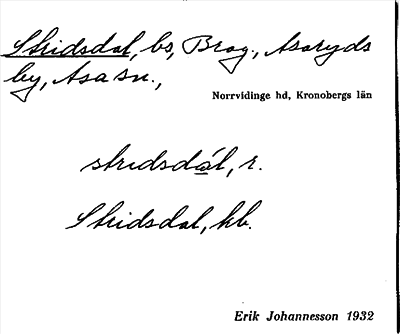 Stridsdal, bs, Brag., Asaryds
by, Asa sn.,
Norrvidinge hd, Kronobergs län
stridsdál, r.
Stridsdal, kb.
Erik Johannesson 1932